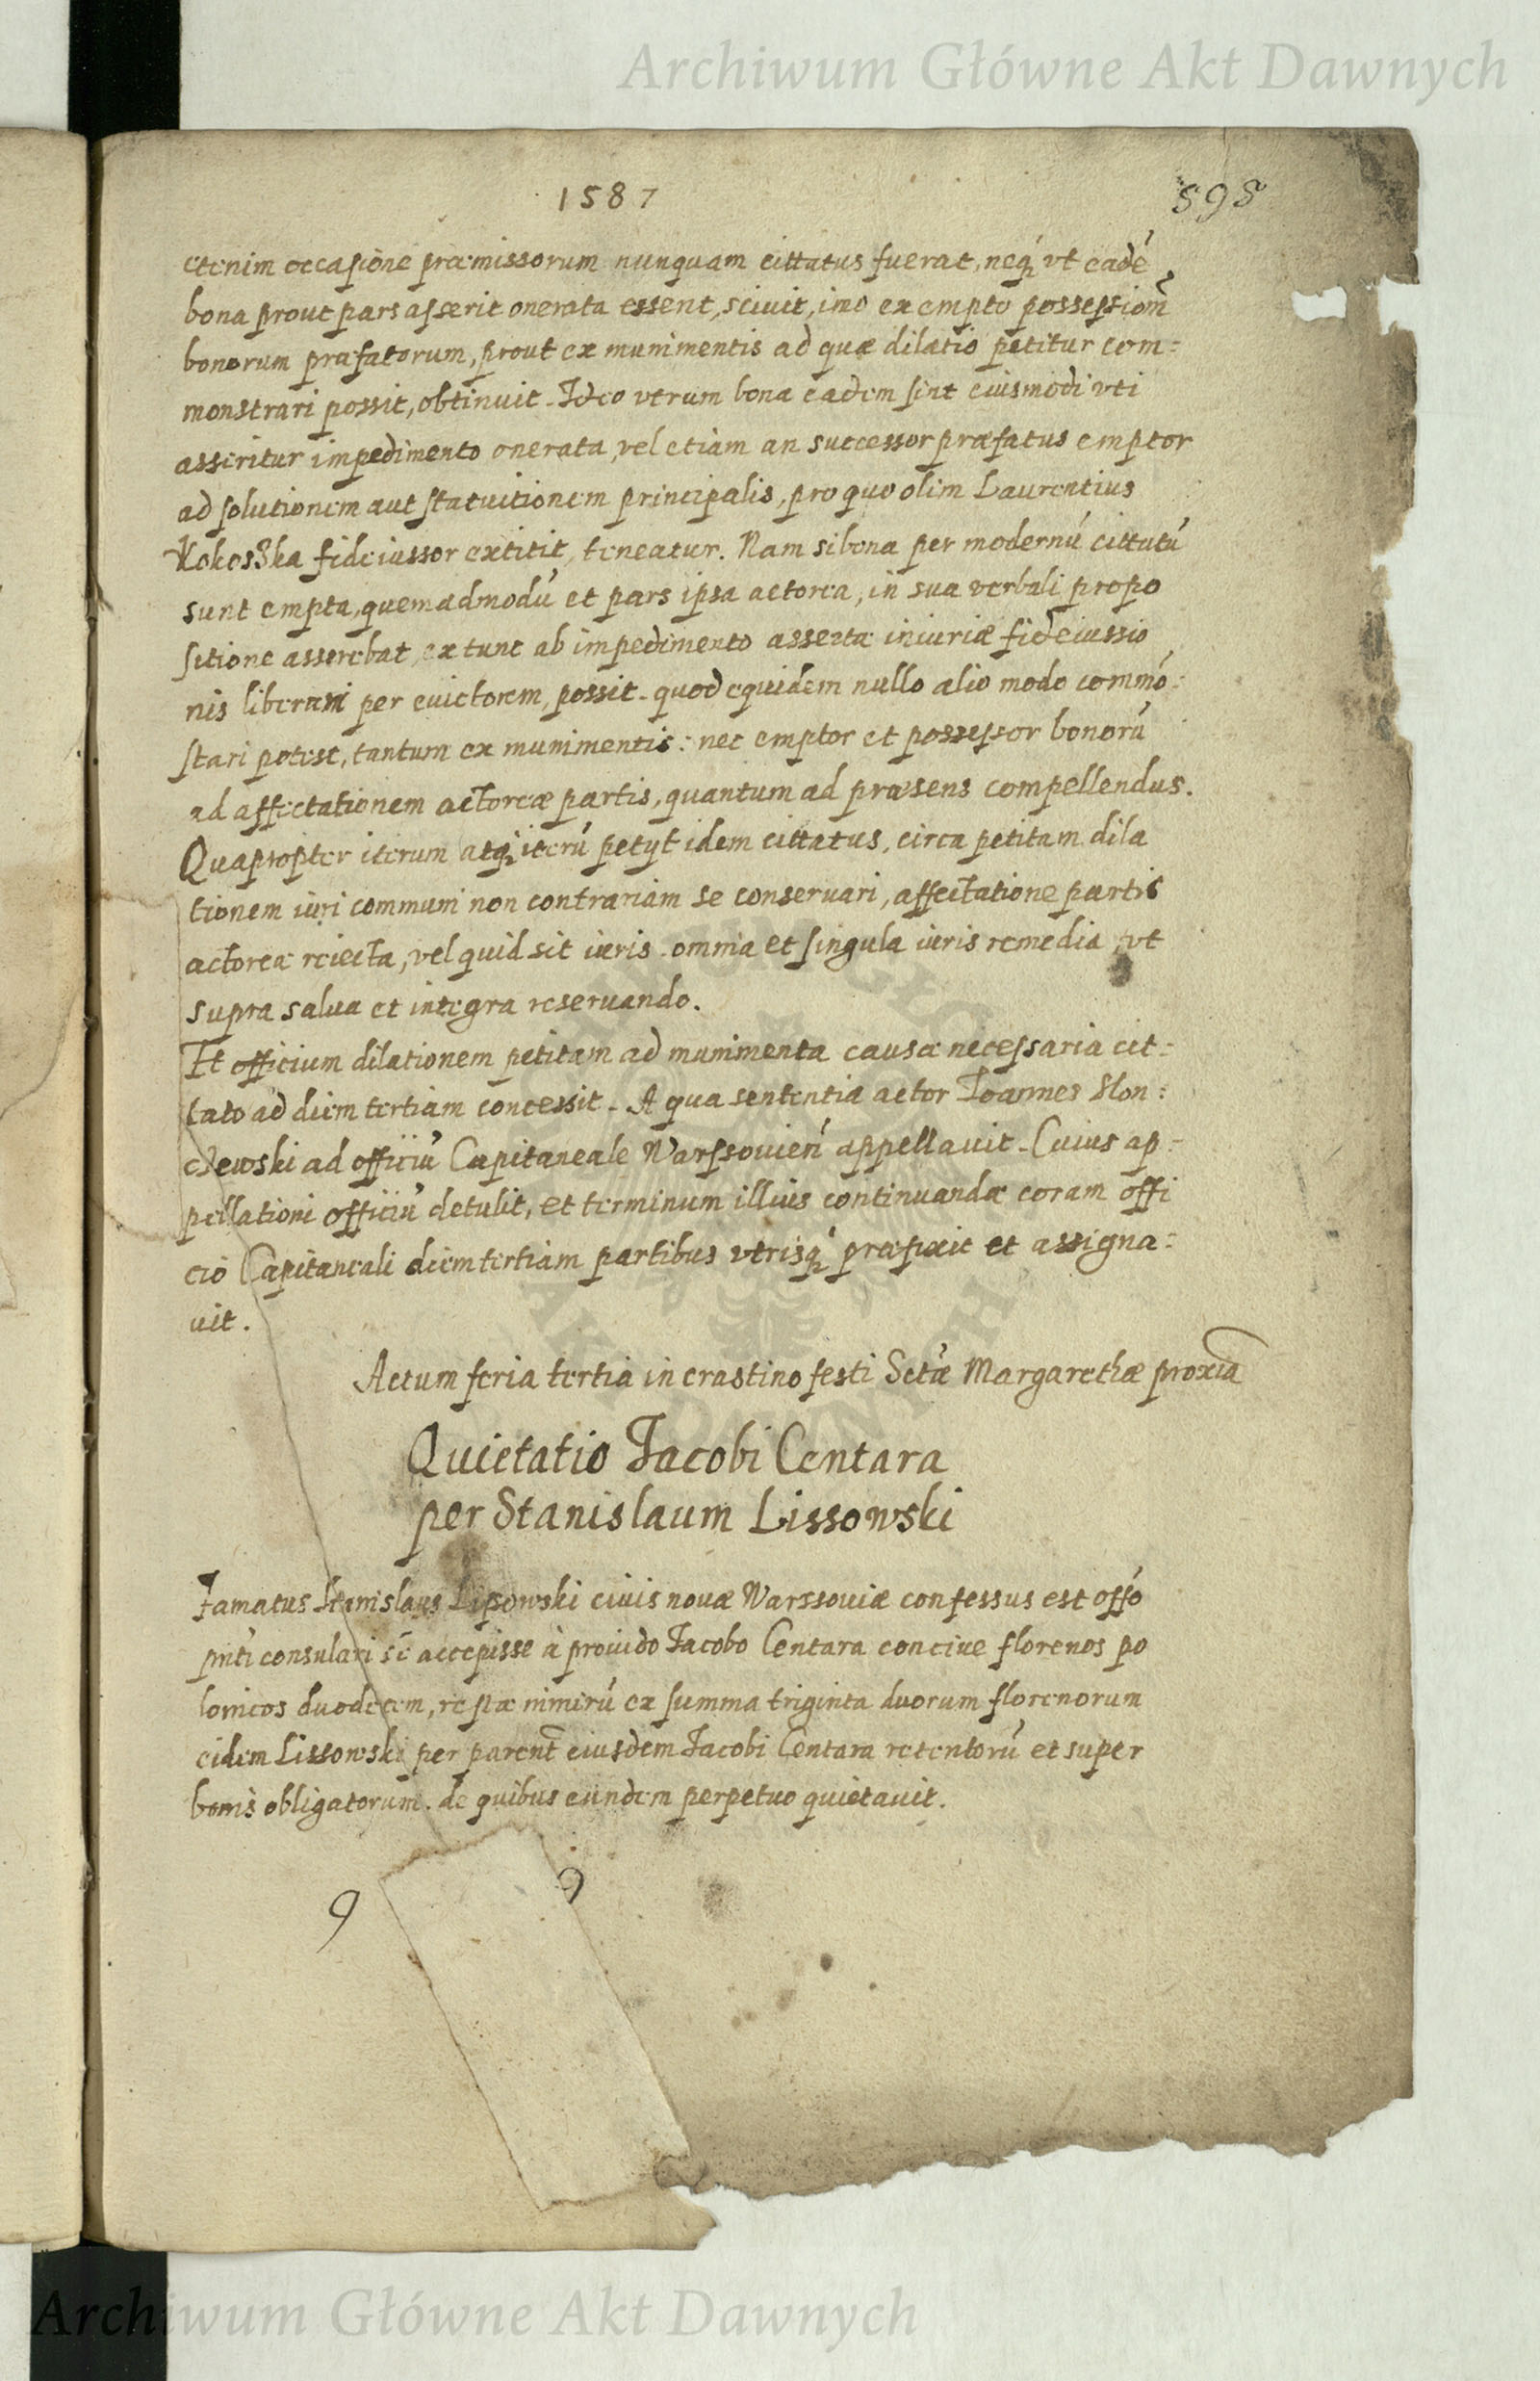 Archiwum Główne Akt Dawnych
1587
595
etenim occasione præmissorum nunquam cittatus fuerat, neq́ vt eadē
bona prout pars asserit onerata essent, sciuit, imo ex empto possession̄
bonorum præfatorum, prout ex munimentis ad quæ dilatio petitur com:
monstrari possit, obtinuit. Ideo vtrum bona eadem sint euismodi vti
asseritur impedimento onerata, vel etiam an successor præfatus emptor
ad solutionem aut statuitionem principalis, pro quo olim Laurentius
Kokosska fideiussor extitit, teneatur. Nam si bona per modernū cittatū
sunt empta, quemadmodū et pars ipsa actorea, in sua verbali propo
sitione asserebat, ex tunc ab impedimento assertæ iniuriæ fideiussio
nis liberari per euictorem, possit. quod equidem nullo alio modo commō:
stari potest, tantum ex munimentis: nec emptor et possessor bonorū
ad affectationem actoreæ partis, quantum ad præsens compellendus.
Quapropter iterum atq́ iterū petyt idem cittatus, circa petitam dila
tionem iuri communi non contrariam se conseruari, affectatione partis
actoreæ reiecta, vel quid sit iuris. omnia et singula iuris remedia, vt
supra salua et integra reseruando.
Et officium dilationem petitam ad munimenta causæ necessaria cit:
tato ad diem tertiam concessit. A qua sententia actor Joannes Slon:
czewski ad officiū Capitaneale Warssouien̄ appellauit. Cuius ap:
pellationi officiū detulit, et terminum illius continuandæ coram offi
cio Capitaneali diem tertiam partibus vtrisq́ præfixit et assigna:
uit.
Actum feria tertia in crastino festi Sctæ Margarethæ proxia
Quietatio Jacobi Centara
per Stanislaum Lissowski
Famatus Stanislaus Lissowski ciuis nouæ Warssouiæ confessus est offo
pnti consulari sē accepisse à prouido Jacobo Centara conciue florenos po
lonicos duodecem, restæ nimirū ex summa triginta duorum florenorum
eidem Lissowski per parent̄ eiusdem Jacobi Centara retentorū et super
bonis obligatorum. de quibus eundem perpetuo quietauit.
Archiwum Główne Akt Dawnych